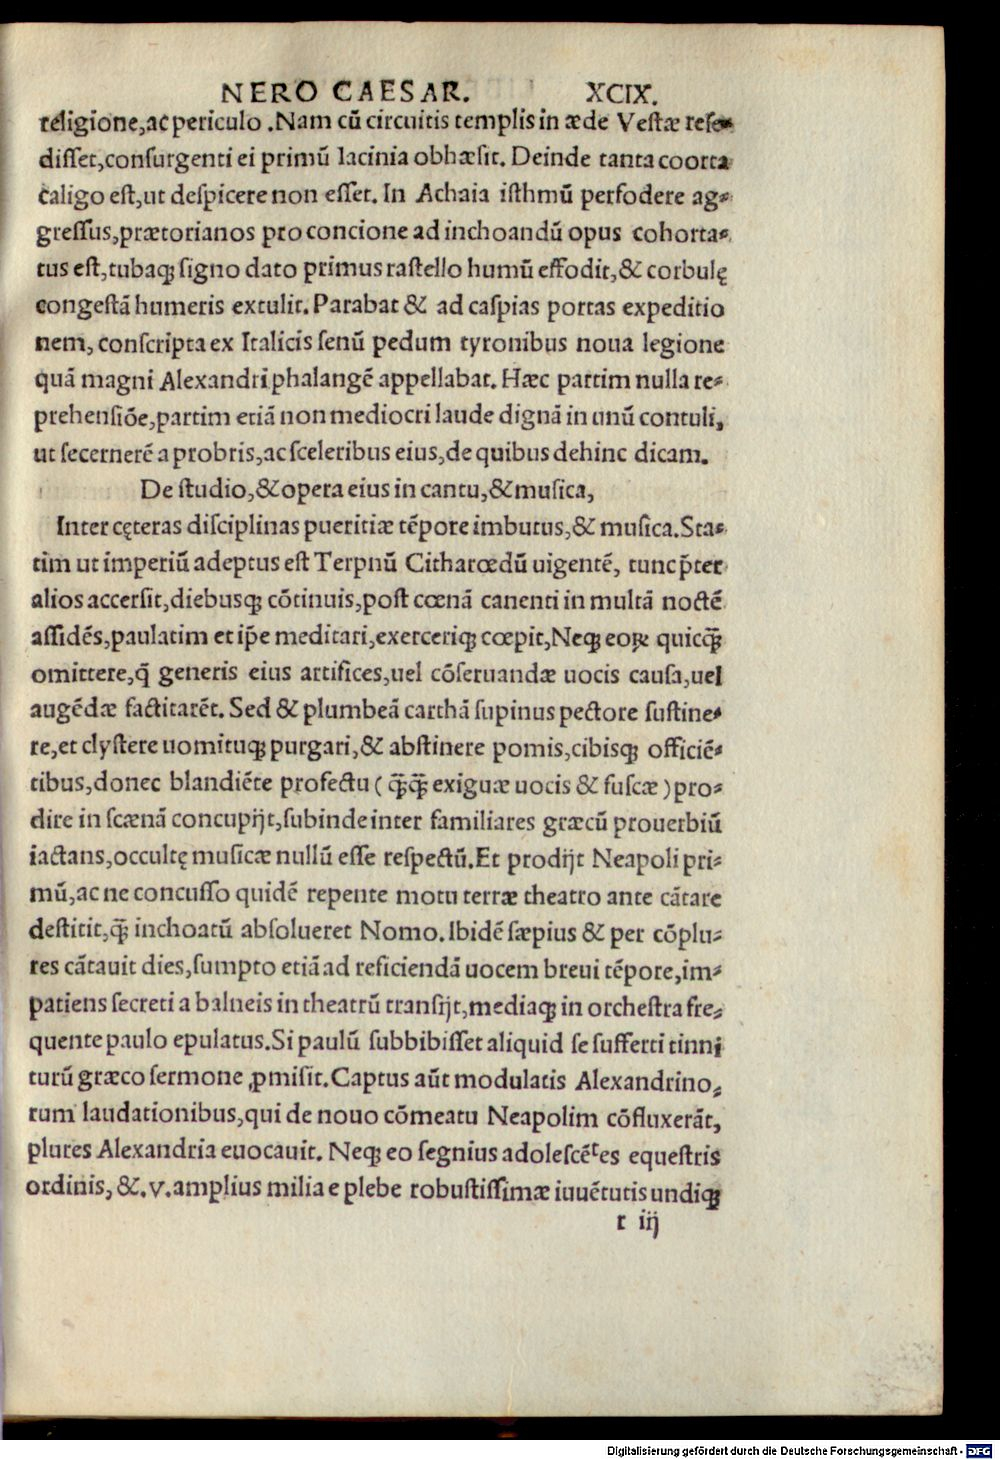 NERO CAESAR. XCIX.
religione,ac periculo .Nam cū circuitis templis in æde Vestæ rese⸗
disset,consurgenti ei primū lacinia obhæsit. Deinde tanta coorta
caligo est,ut despicere non esset. In Achaia isthmū perfodere ag⸗
gressus,prætorianos pro concione ad inchoandū opus cohorta⸗
tus est,tubaqꝫ signo dato primus rastello humū effodit,& corbulę
congestā humeris extulit. Parabat & ad caspias portas expeditio
nem, conscripta ex Italicis senū pedum tyronibus noua legione
quā magni Alexandri phalangē appellabat. Hæc partim nulla re⸗
prehensiōe,partim etiā non mediocri laude dignā in unū contuli,
ut secernerē a probris,ac sceleribus eius,de quibus dehinc dicam.
De studio,& opera eius in cantu,& musica,
Inter cęteras disciplinas pueritiæ tēpore imbutus,& musica.Sta⸗
tim ut imperiū adeptus est Terpnū Citharœdū uigentē, tunc p̄ter
alios accersit,diebusqꝫ cōtinuis,post cœnā canenti in multā noctē
assidēs,paulatim et ip̄e meditari,exerceriqꝫ cœpit,Neqꝫ eoꝝ quicq̄ꝫ
omittere,q̄ generis eius artifices,uel cōseruandæ uocis causa,uel
augēdæ factitarēt. Sed & plumbeā carthā supinus pectore sustine⸗
re,et clystere uomituqꝫ purgari,& abstinere pomis,cibisqꝫ officiē⸗
tibus,donec blandiēte profectu ( q̄ꝫq̄ꝫ exiguæ uocis & fuscæ ) pro⸗
dire in scænā concupijt,subinde inter familiares græcū prouerbiū
iactans,occultę musicæ nullū esse respectū.Et prodijt Neapoli pri⸗
mū,ac ne concusso quidē repente motu terræ theatro ante cātare
destitit,q̄ꝫ inchoatū absolueret Nomo.Ibidē sæpius & per cōplu⸗
res cātauit dies,sumpto etiā ad reficiendā uocem breui tēpore,im⸗
patiens secreti a balneis in theatrū transijt,mediaqꝫ in orchestra fre⸗
quente paulo epulatus.Si paulū subbibisset aliquid se sufferti tinni
turū græco sermone ꝓmisit.Captus aūt modulatis Alexandrino⸗
rum laudationibus,qui de nouo cōmeatu Neapolim cōfluxerāt,
plures Alexandria euocauit. Neqꝫ eo segnius adolescētes equestris
ordinis, &.v.amplius milia e plebe robustissimæ iuuētutis undiqꝫ
r iij
Digitalisierung gefördert durch die Deutsche Forschungsgemeinschaft - DFG